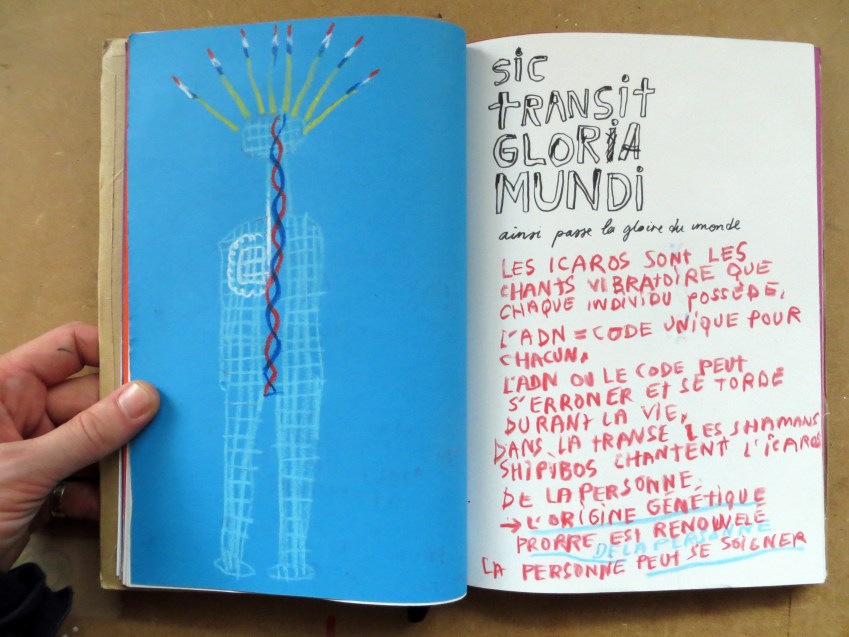 sic
transit
GLORIA
MUNDi
ainsi passe la gloire du monde
LES ICAROS SONT LES
CHANTS VIBRATOIRE QUE
CHAQUE INDIVIDU POSSÈDE,
L'ADN = CODE UNIQUE POUR
CHACUN.
L'ADN OU LE CODE PEUT
S'ERRONER ET SE TORDE
DURANT LA VIE,
DANS LA TRANSE LES SHAMANS
SHIPIBOS CHANTENT L'ICAROS
DE LA PERSONNE.
→ L'ORIGINE GÉNÉTIQUE
PROPRE EST RENOUVELÉ
DE LA PERSONNE
LA PERSONNE PEUT SE SOIGNER